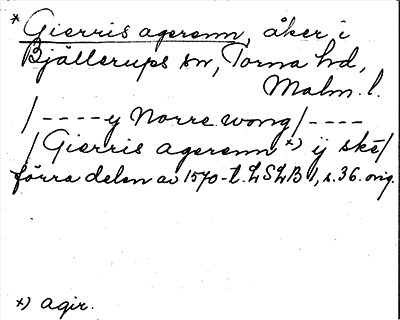 * Gierris agerenn, åker i
Bjällerups sn, Torna hd,
Malm. l.
/ - - - - y Norre wong / - - - -
/ Gierris agerenn x) ij ske /
förra delen av 1570-t. LSLB 1, s. 36. orig.
x) agir.